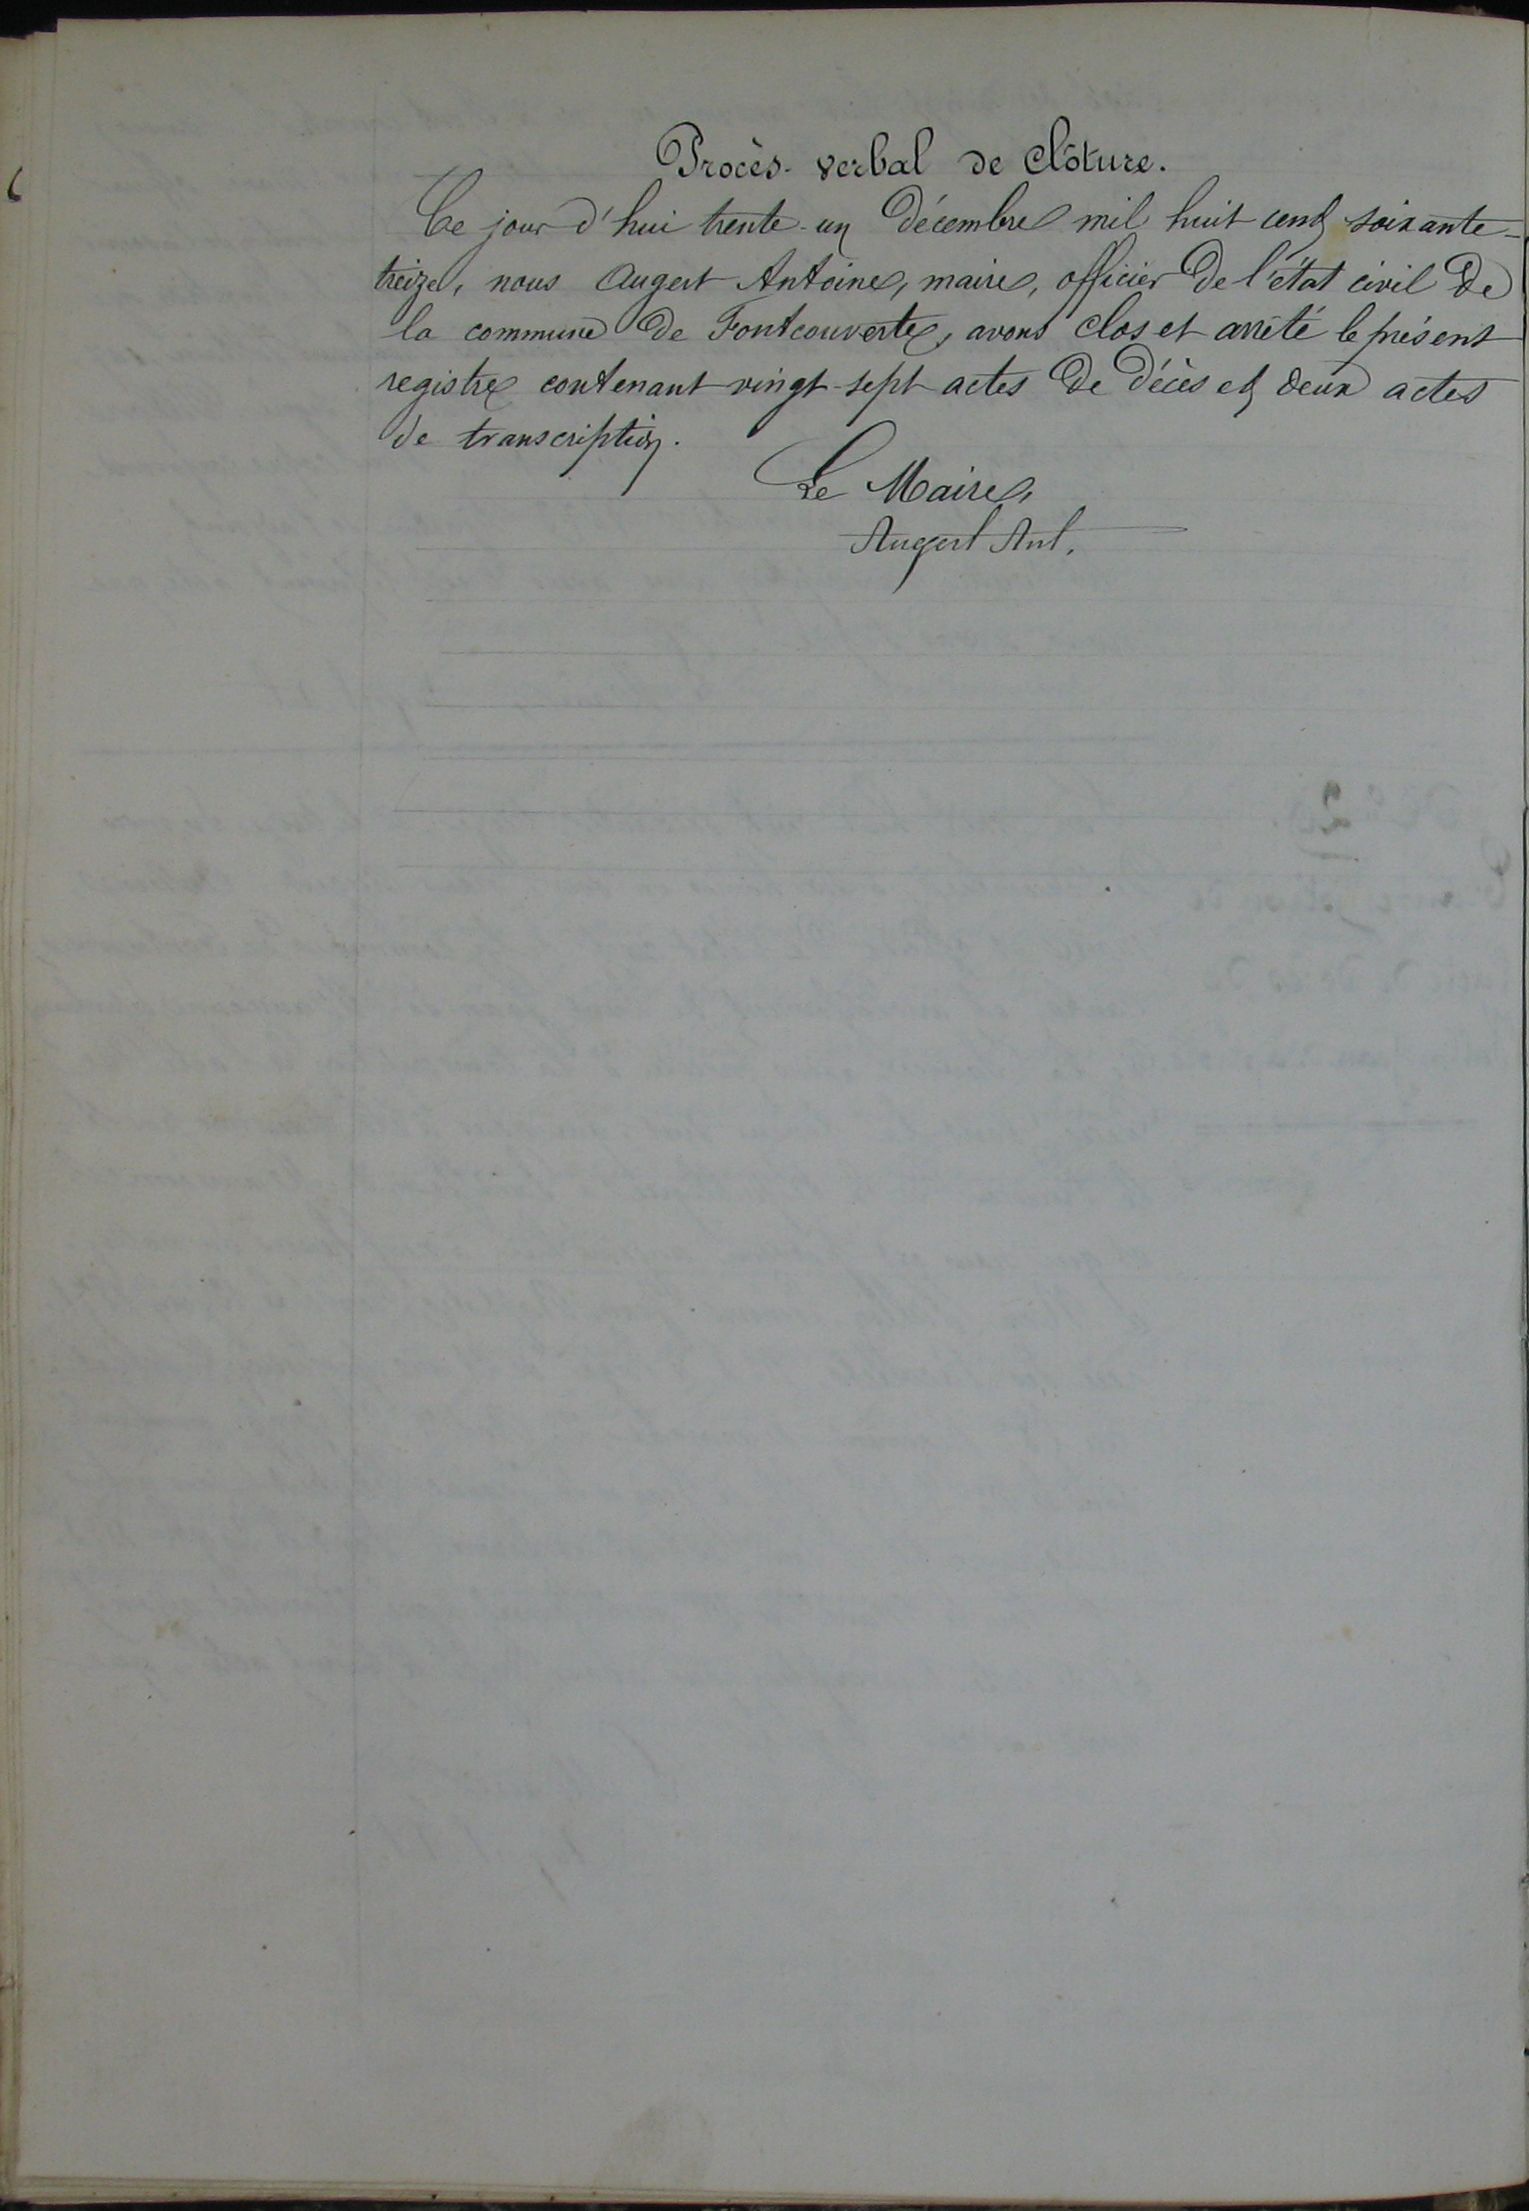 Procès-verbal de clôture.
Ce jour d'hui trente-un décembre mil huit cent soixante-
treize, nous Augert Antoine, maire, officier de l'état civil de
la commune de Fontcouverte, avons clos et arrêté le présent
registre contenant vingt-sept actes de décès et deux actes
de transcription.
Le Maire,
Augert Ant.